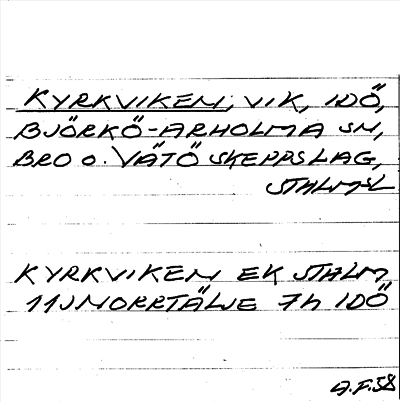 KYRKVIKEN, VIK, IDÖ,
BJÖRKÖ-ARHOLMA SN,
BRO O. VÄTÖ SKEPPSLAG,
STHLMSL
KYRKVIKEN EK STHLM
11J NORRTÄLJE 7h IDÖ
A.F.58